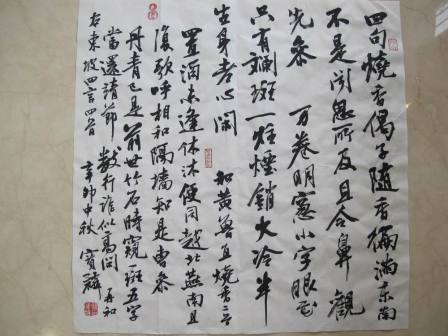 四句燒香偈子隨香徧滿東南
不是聞思所及且令鼻觀
先參 万卷明窗小字眼花
只有斕斑一炷煙銷火冷半
生身老心閑 和黃魯直燒香二首
置酒未逢休沐便同越北燕南且
復歌呼相和隔墻知是曹參
丹青已是前世竹石時窺斑五字
當還靖節數行誰似高閑 再和
右東坡四言四首 辛卯中秋 寶